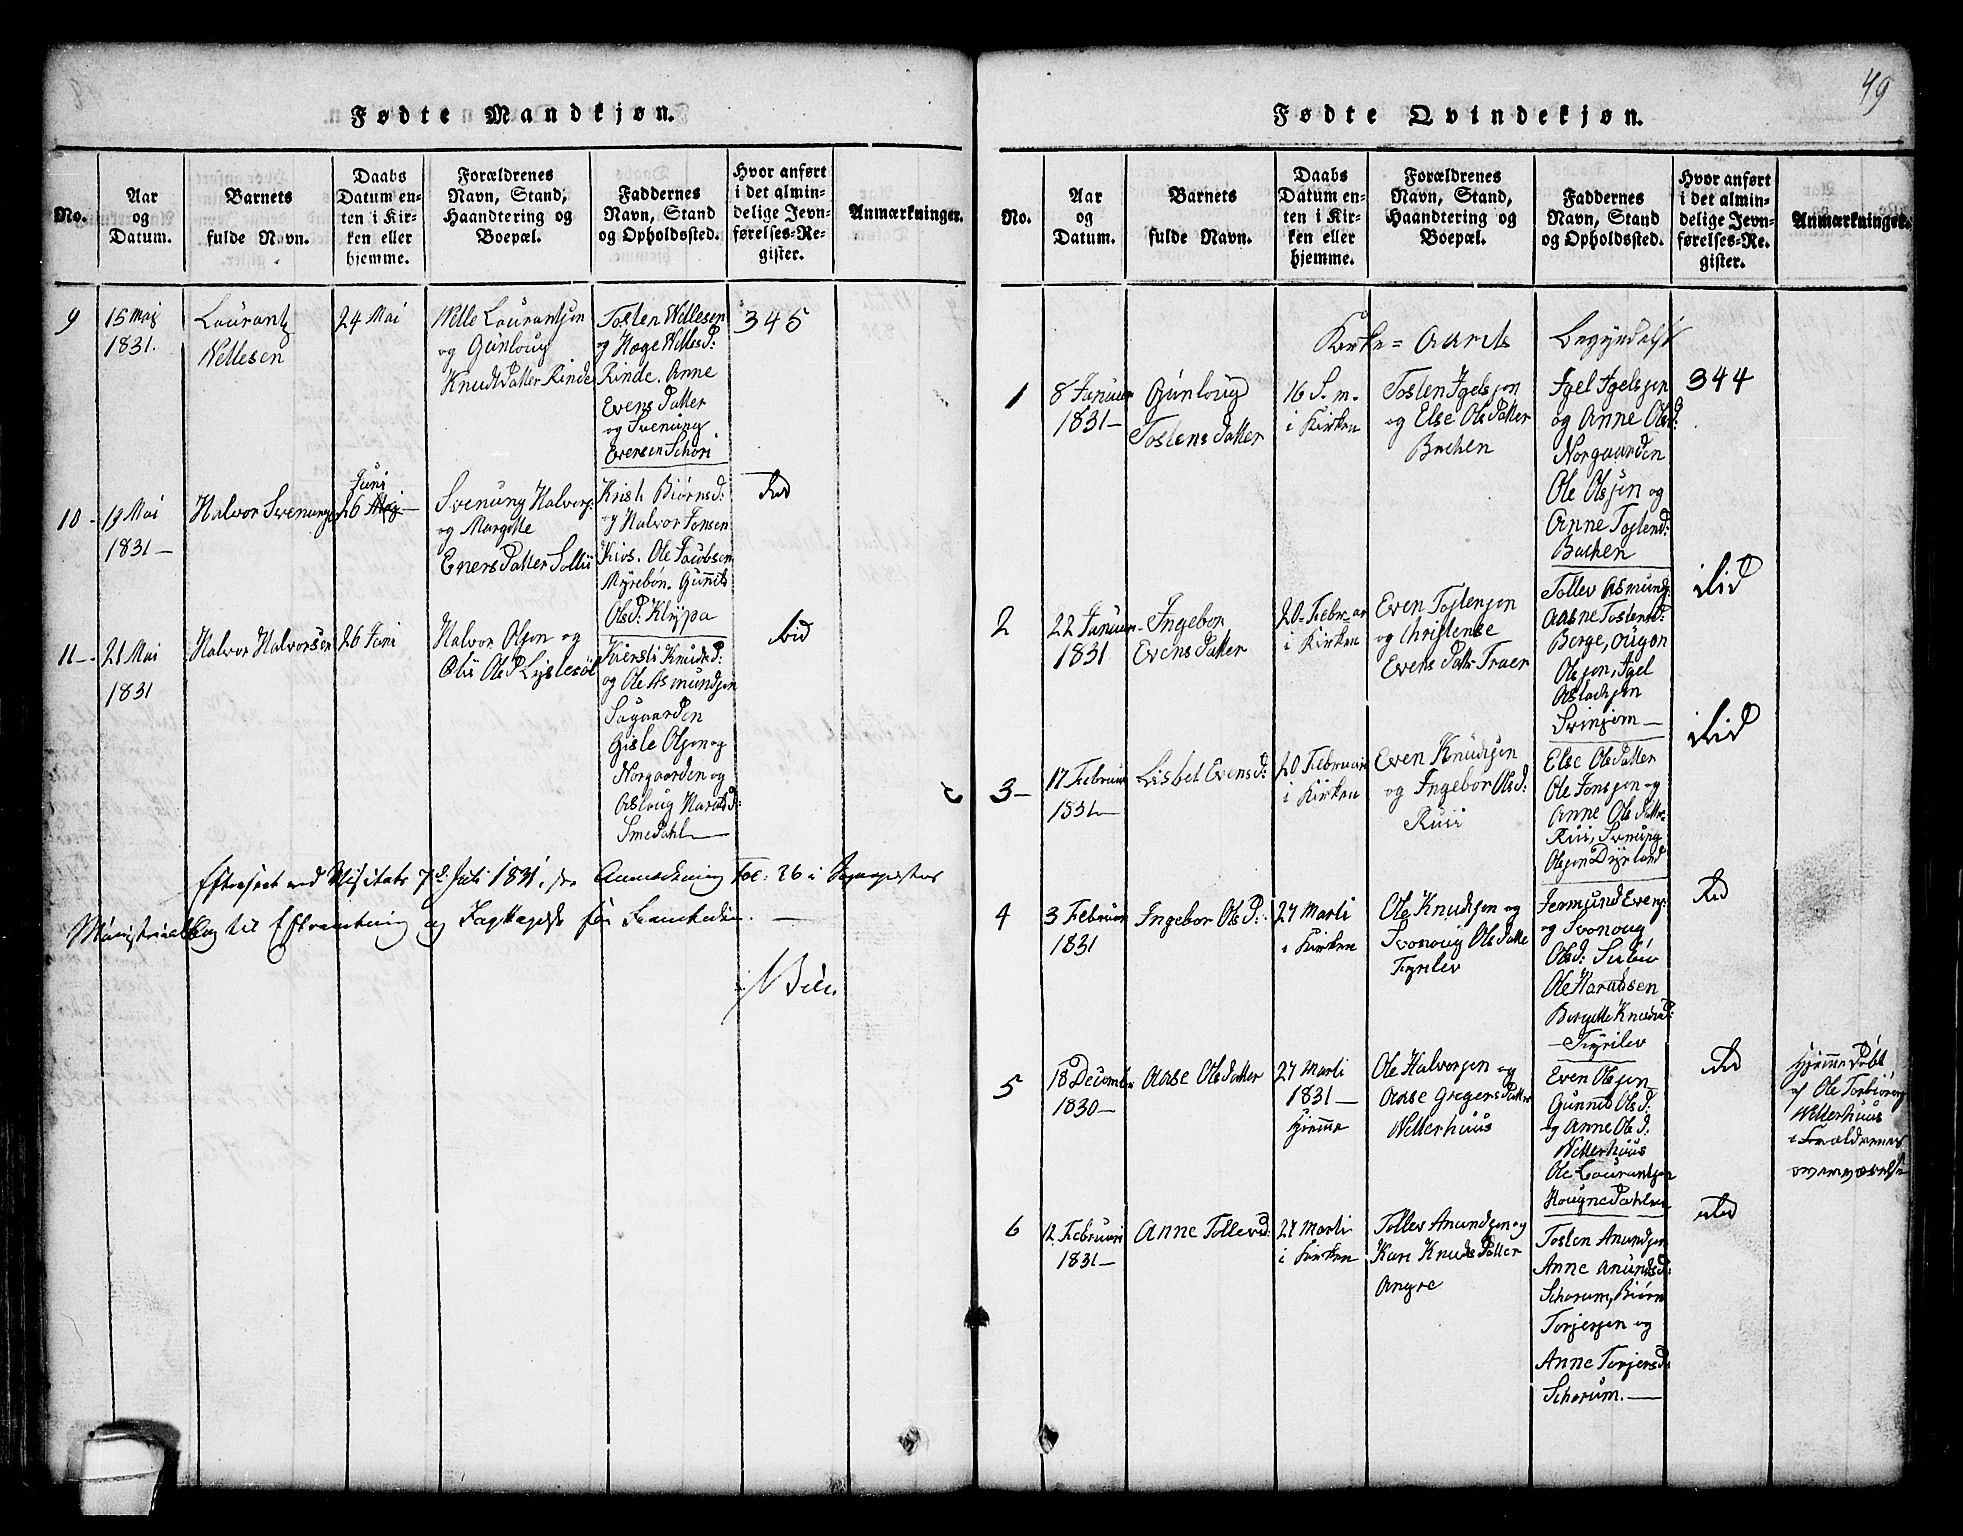 49
Fødte Mandkjøn.
No.
Aar
og
Datum.
Barnets
fulde Navn.
Daabs
Datum en-
ten i Kir-
ken eller
hjemme.
Forældrenes
Navn, Stand,
Haandtering og
Boepæl.
Faddernes
Navn, Stand
og Opholdssted.
Hvor anført
i det almin-
delige Jevn-
førelses-Re-
gister.
Anmærkninger.
9
15 Maj
1831.
Laurantz
Nellesen
24 Mai
Nelle Laurantsen
og Gunloug
Knudsdatter Rinde
Tosten Nellesen
og Hæge Nellesd:
Rinde. Anne
Evens Datter
og Svenung
Evensen Schori
345
10 -
19 Mai
1831 -
Halvor Svenungs
Juni
26 Maj
Svenung Halvors:
og Margthe
Eners Datter Sollii
Kirsti Biørnsd:
og Halvor Jonsen
Kios. Ole Jacobsen
Myrebøn. Gunnil
Olsd: Klypa
ibid
11 -
21 Mai
1831
Halvor Halvorsen
26 Juni
Halvor Olson og
Olsd Lyslesøl
Kiersti Knudsd:
og Ole Asmundsen
Sagaarden
Gisle Olsen og
Norgaarden og
Asloug Haralsd:
Smedahl
ibid
Efterseet ved Visitats 7d Juli 1831, se Anmerkning Fol: 26 i Sognepræstens
Ministerialbog til Efterretning og Iagttagelse for Fremtiden.
Fødte Qvindekjøn.
No.
Aar
og
Datum.
Barnets
fulde Navn.
Daabs
Datum en-
ten i Kir-
ken eller
hjemme.
Forældrenes
Navn, Stand,
Haandtering og
Boepæl.
Faddernes
Navn, Stand
og Opholdssted.
Hvor anført
i det almin-
delige Jevn-
førelses-Re-
gister.
Anmærkninger.
Kirke = Aarets Begyndelse
1
8 Januar
1831 -
Gunloug
Tostens Datter
16 S. m.
i Kirken
Tosten Igelsen
og Else Ols Datter
Bachen
Igel Igelsen
og Anne Olsd:
Norgaarden
Ole Olsen og
Anne Tostend:
Bachen
344
2
22 Januar
1831
Ingebor
Evens Datter
20 Februar
i Kirken
Even Tostensen
og Christense
Evens Datt: Traer
Tollev Asmunds
Aasne Tostensd:
Berge, AuGon
Olsen, Igel
Aslachsen
Svinsom
ibid
3 -
17 Februar
1831 -
Lisbel Evensd:
20 Februar
i Kirken
Even Knudsen
og Ingebor Olsd:
Ruii
Else Ols Datter
Ole Jonsen og
Anne Ols Datter
Ruii, Svenung
Olsen Dyrland
ibid
4
3 Februar
1831
Ingebor Olsd:
27 Marti
i Kirken
Ole Knudsen og
Svonoug Ols Datte
Fyrilev
Jermund Evens
og Svonoug
Olsd:
Ole Haraldsen
Bergitte Knudsd:
- Fyrilev
ibid
5
18 Decemb:
1830 -
Aase Ols Datter
27 Marti
1831 -
Hjemme
Ole Halvorsen og
Aase Gregers Datter
Nelterhuus
Even Olsen
Gunnild Olsd:
og Anne Olsd:
Nelterhuus
Ole Laurantsen
Hougne Dahlen
ibid
Hjemme Døbt
af Ole Torbiørns
Nelterhuus
i Forældrenes
overværelse
6
12 Februari
1831 -
Anne Tollevsd:
27 Marti
i Kirken
Tollev Anundsen og
Kari Knuds Datter
Angre
Tosten Anundsen
Anne Anundsd:
Schorum, Biørn
Torjersen og
Anne Torjersd:
Schorum.
ibid